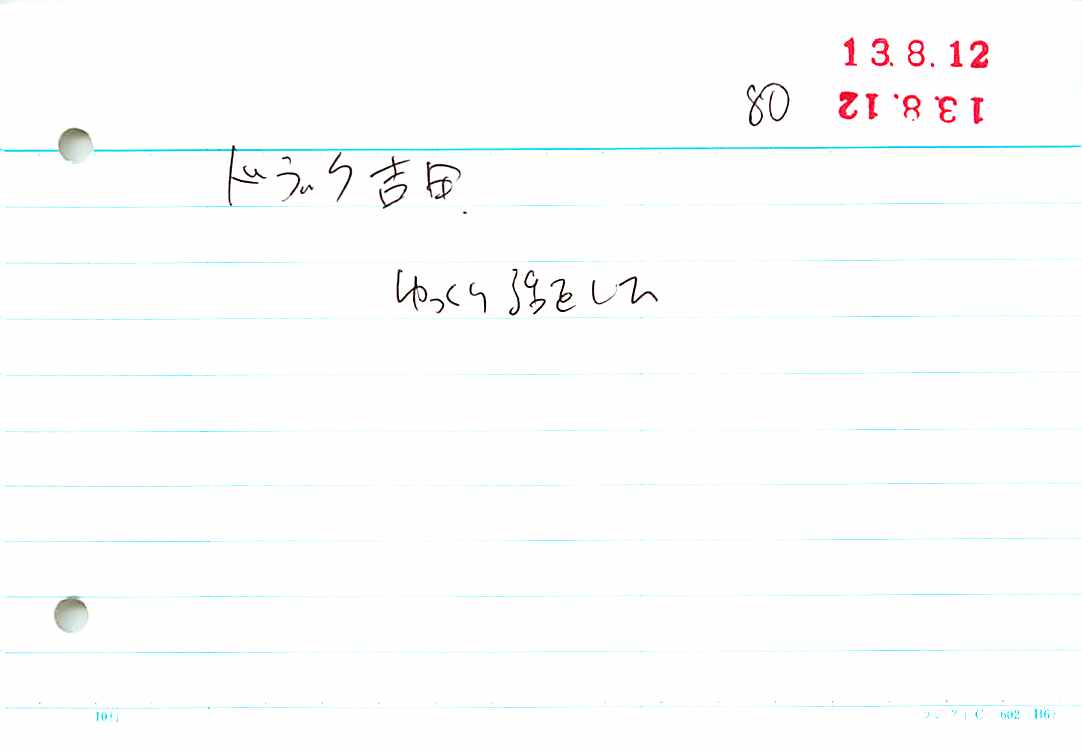 13.8.12
80 13.8.12
ドラッグ吉田
ゆっくり 話をした